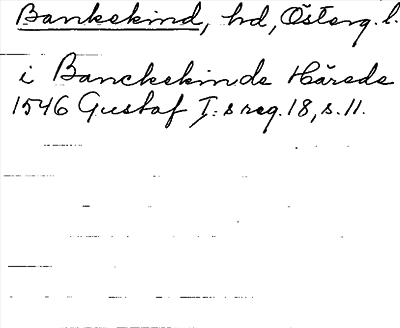 Bankekind, hd, Österg. l.
i Banckekinde Hårede
1546 Gustaf I:s reg. 18, s. 11.